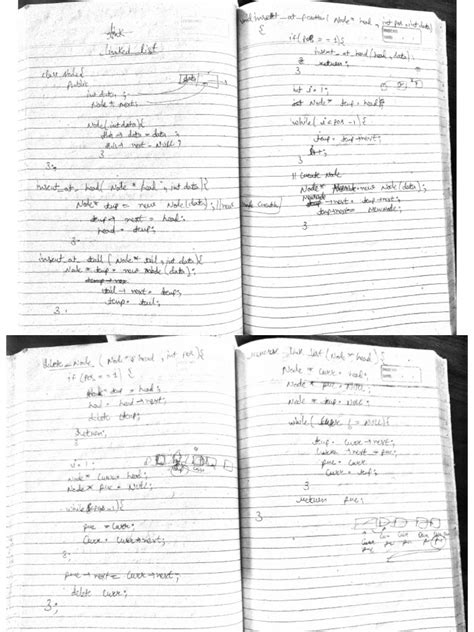 Linked list
class Node {
Public
int data ;
Node * next;
data
Node (int data) {
this -> data = data ;
this -> next = NULL ;
}
};
insert_at_head( Node * head , int data) {
Node* temp = new Node (data) ;
temp -> next = head;
head = temp ;
}
insert_at_tail ( Node * tail , int data) {
Node * temp = new Node (data);
tail -> next = temp;
temp = tail;
}
void insert_at_position ( Node * head , int pos , int data)
{
if( pos == 1) {
insert_at_head (head , data) ;
return;
}
int i = 1;
Node * temp = head;
while( i < pos -1) {
temp = temp->next;
i++;
}
// Create Node
Node * = new Node (data) ;
-> next = temp -> next;
temp->next = Newnode;
}
delete_Node ( Node * head , int pos) {
if (pos == 1) {
temp = head;
head = head -> next;
delete temp;
return;
}
Node * Curr = head;
Node * pre = NULL;
while( pos-1) {
pre = curr;
Curr = curr->next;
};
pre -> next = Curr -> next;
delete Curr;
};
reverse_link list (Node * head) {
Node * curr = head;
Node * pre = NULL;
Node * temp = NULL;
while( curr != NULL) {
temp = curr->next;
curr -> next = pre;
pre = curr;
curr = temp;
}
return pre;
}